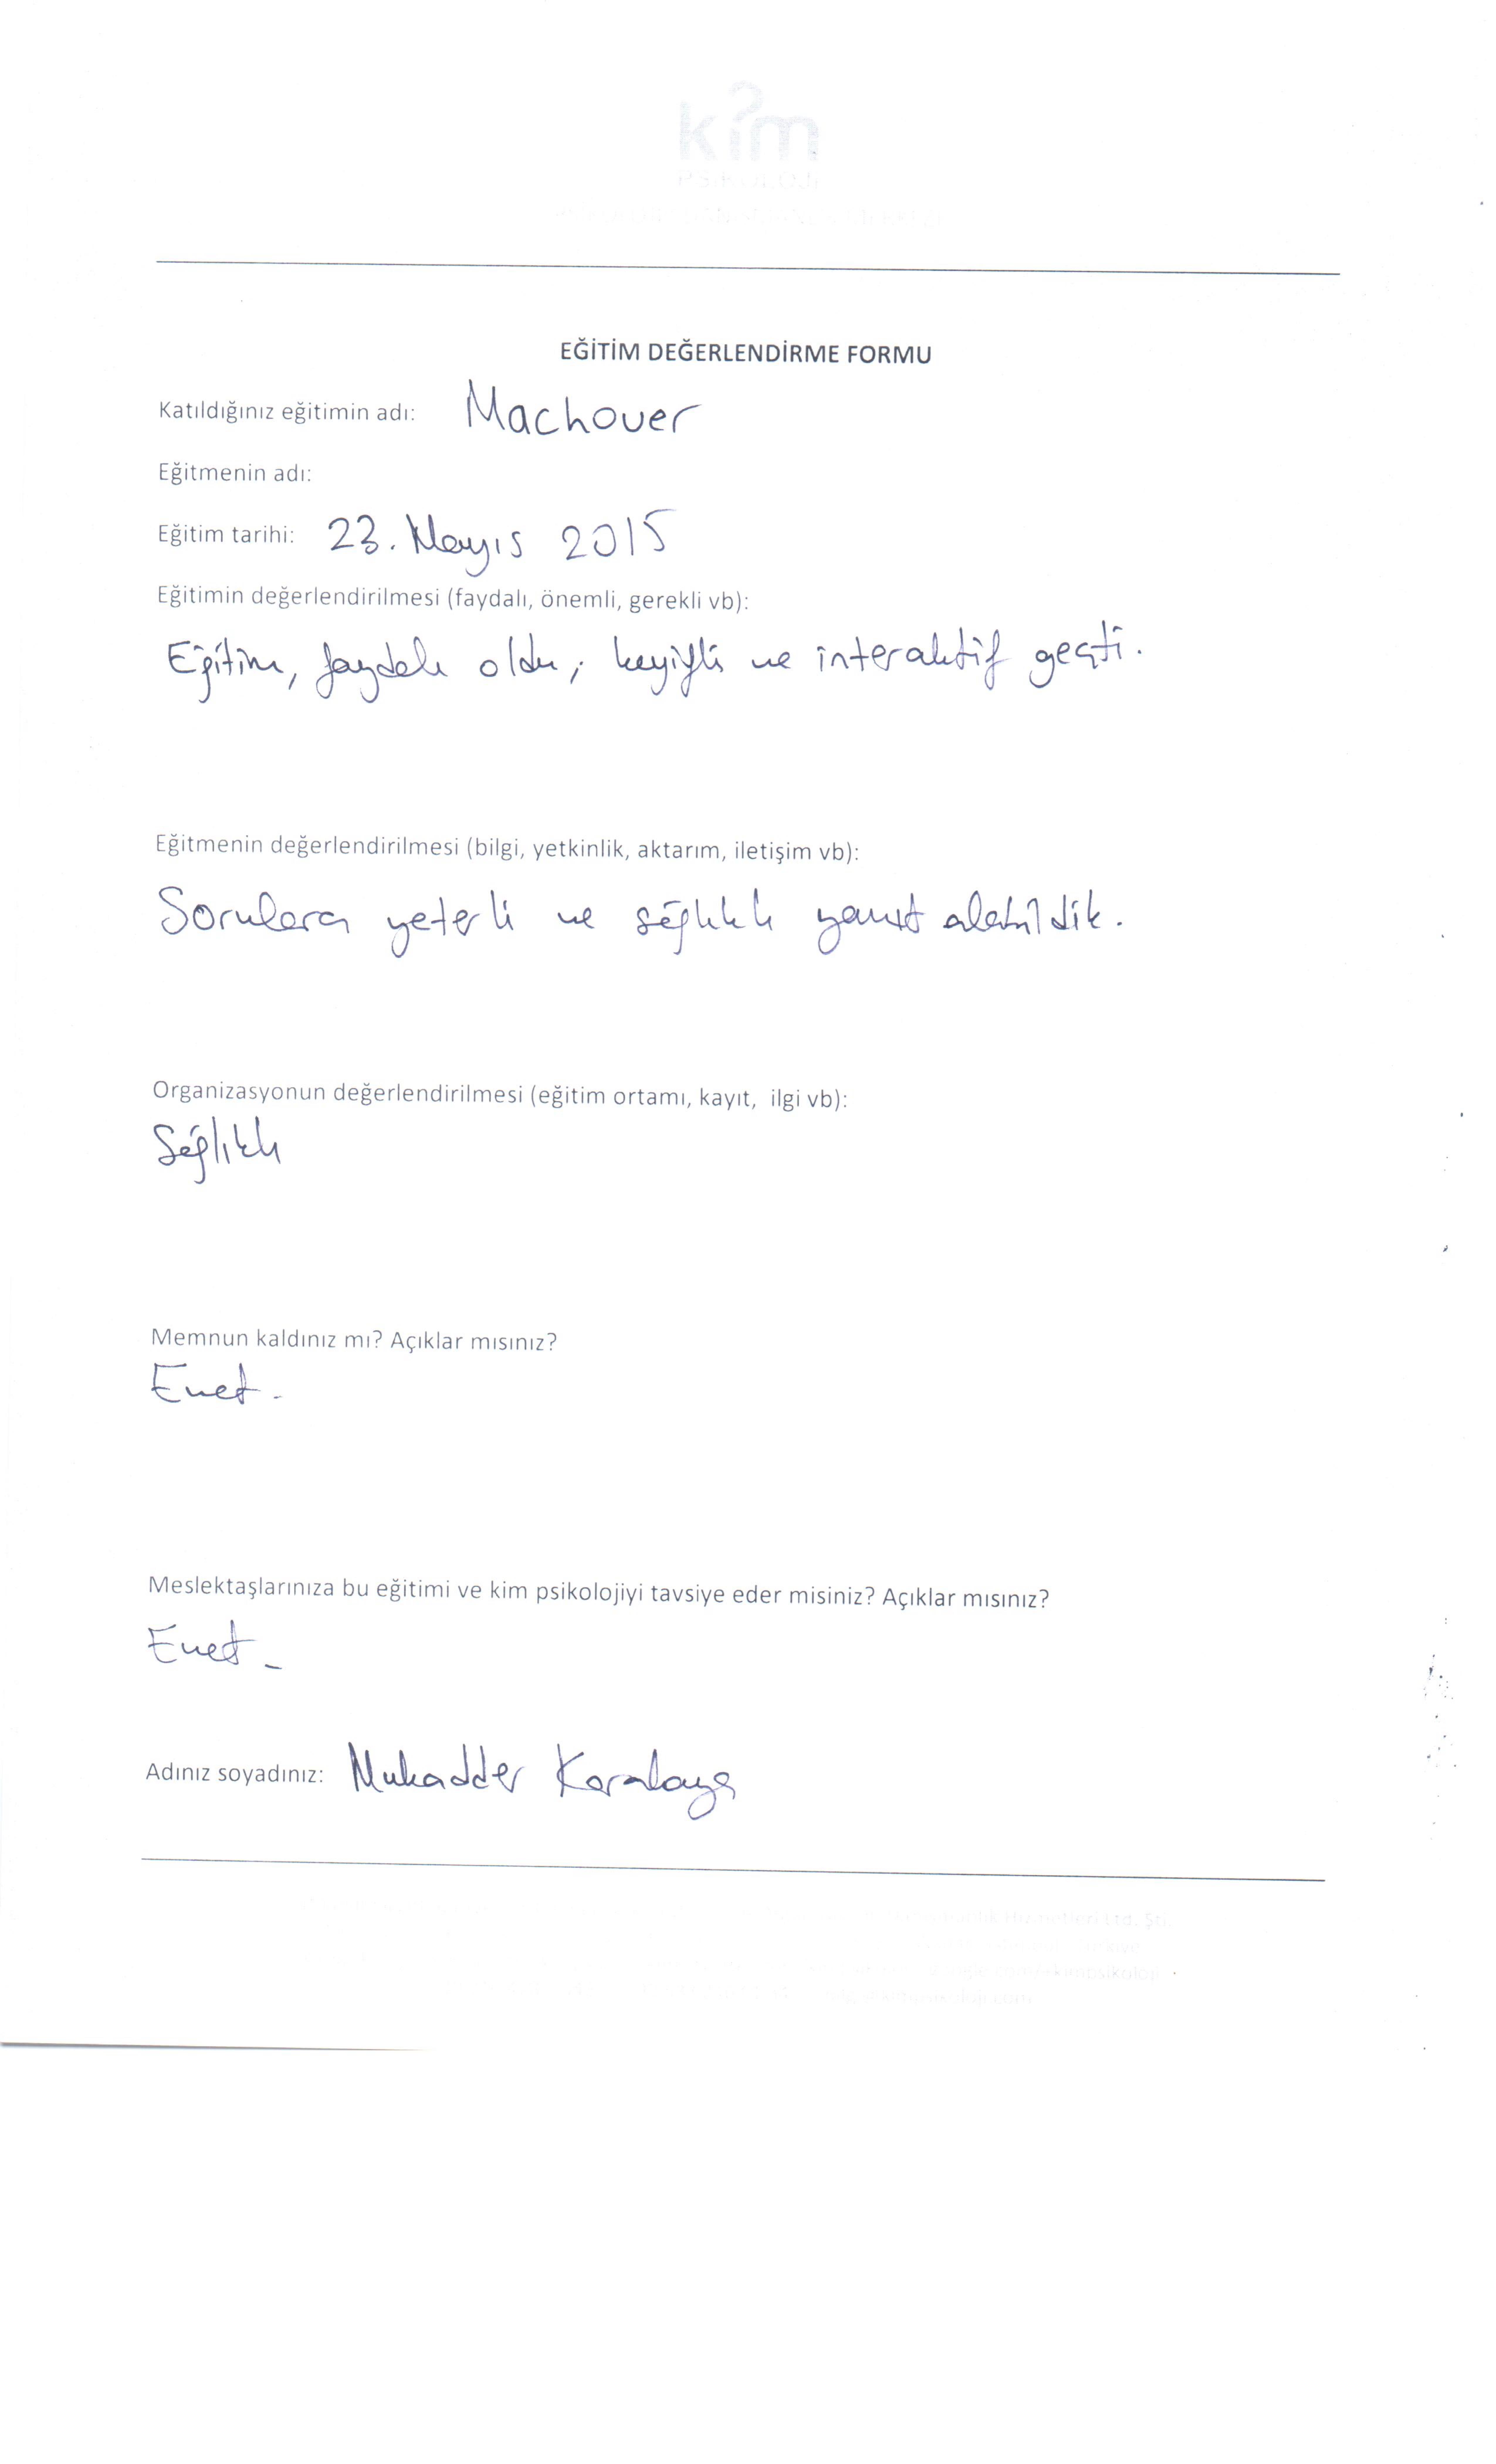 kim
PSİKOLOJİ
EĞİTİM DEĞERLENDİRME FORMU
Katıldığınız eğitimin adı: Machover
Eğitmenin adı:
Eğitim tarihi: 23. Mayıs 2015
Eğitimin değerlendirilmesi (faydalı, önemli, gerekli vb):
Eğitim, faydalı oldu, keyifli ve interaktif geçti.
Eğitmenin değerlendirilmesi (bilgi, yetkinlik, aktarım, iletişim vb):
Sorulara yeterli ve sağlıklı yanıt alabildik.
Organizasyonun değerlendirilmesi (eğitim ortamı, kayıt, ilgi vb):
Sağlıklı
Memnun kaldınız mı? Açıklar mısınız?
Evet.
Meslektaşlarınıza bu eğitimi ve kim psikolojiyi tavsiye eder misiniz? Açıklar mısınız?
Evet.
Adınız soyadınız: Mukadder
Hizmetleri Ltd. Şti.